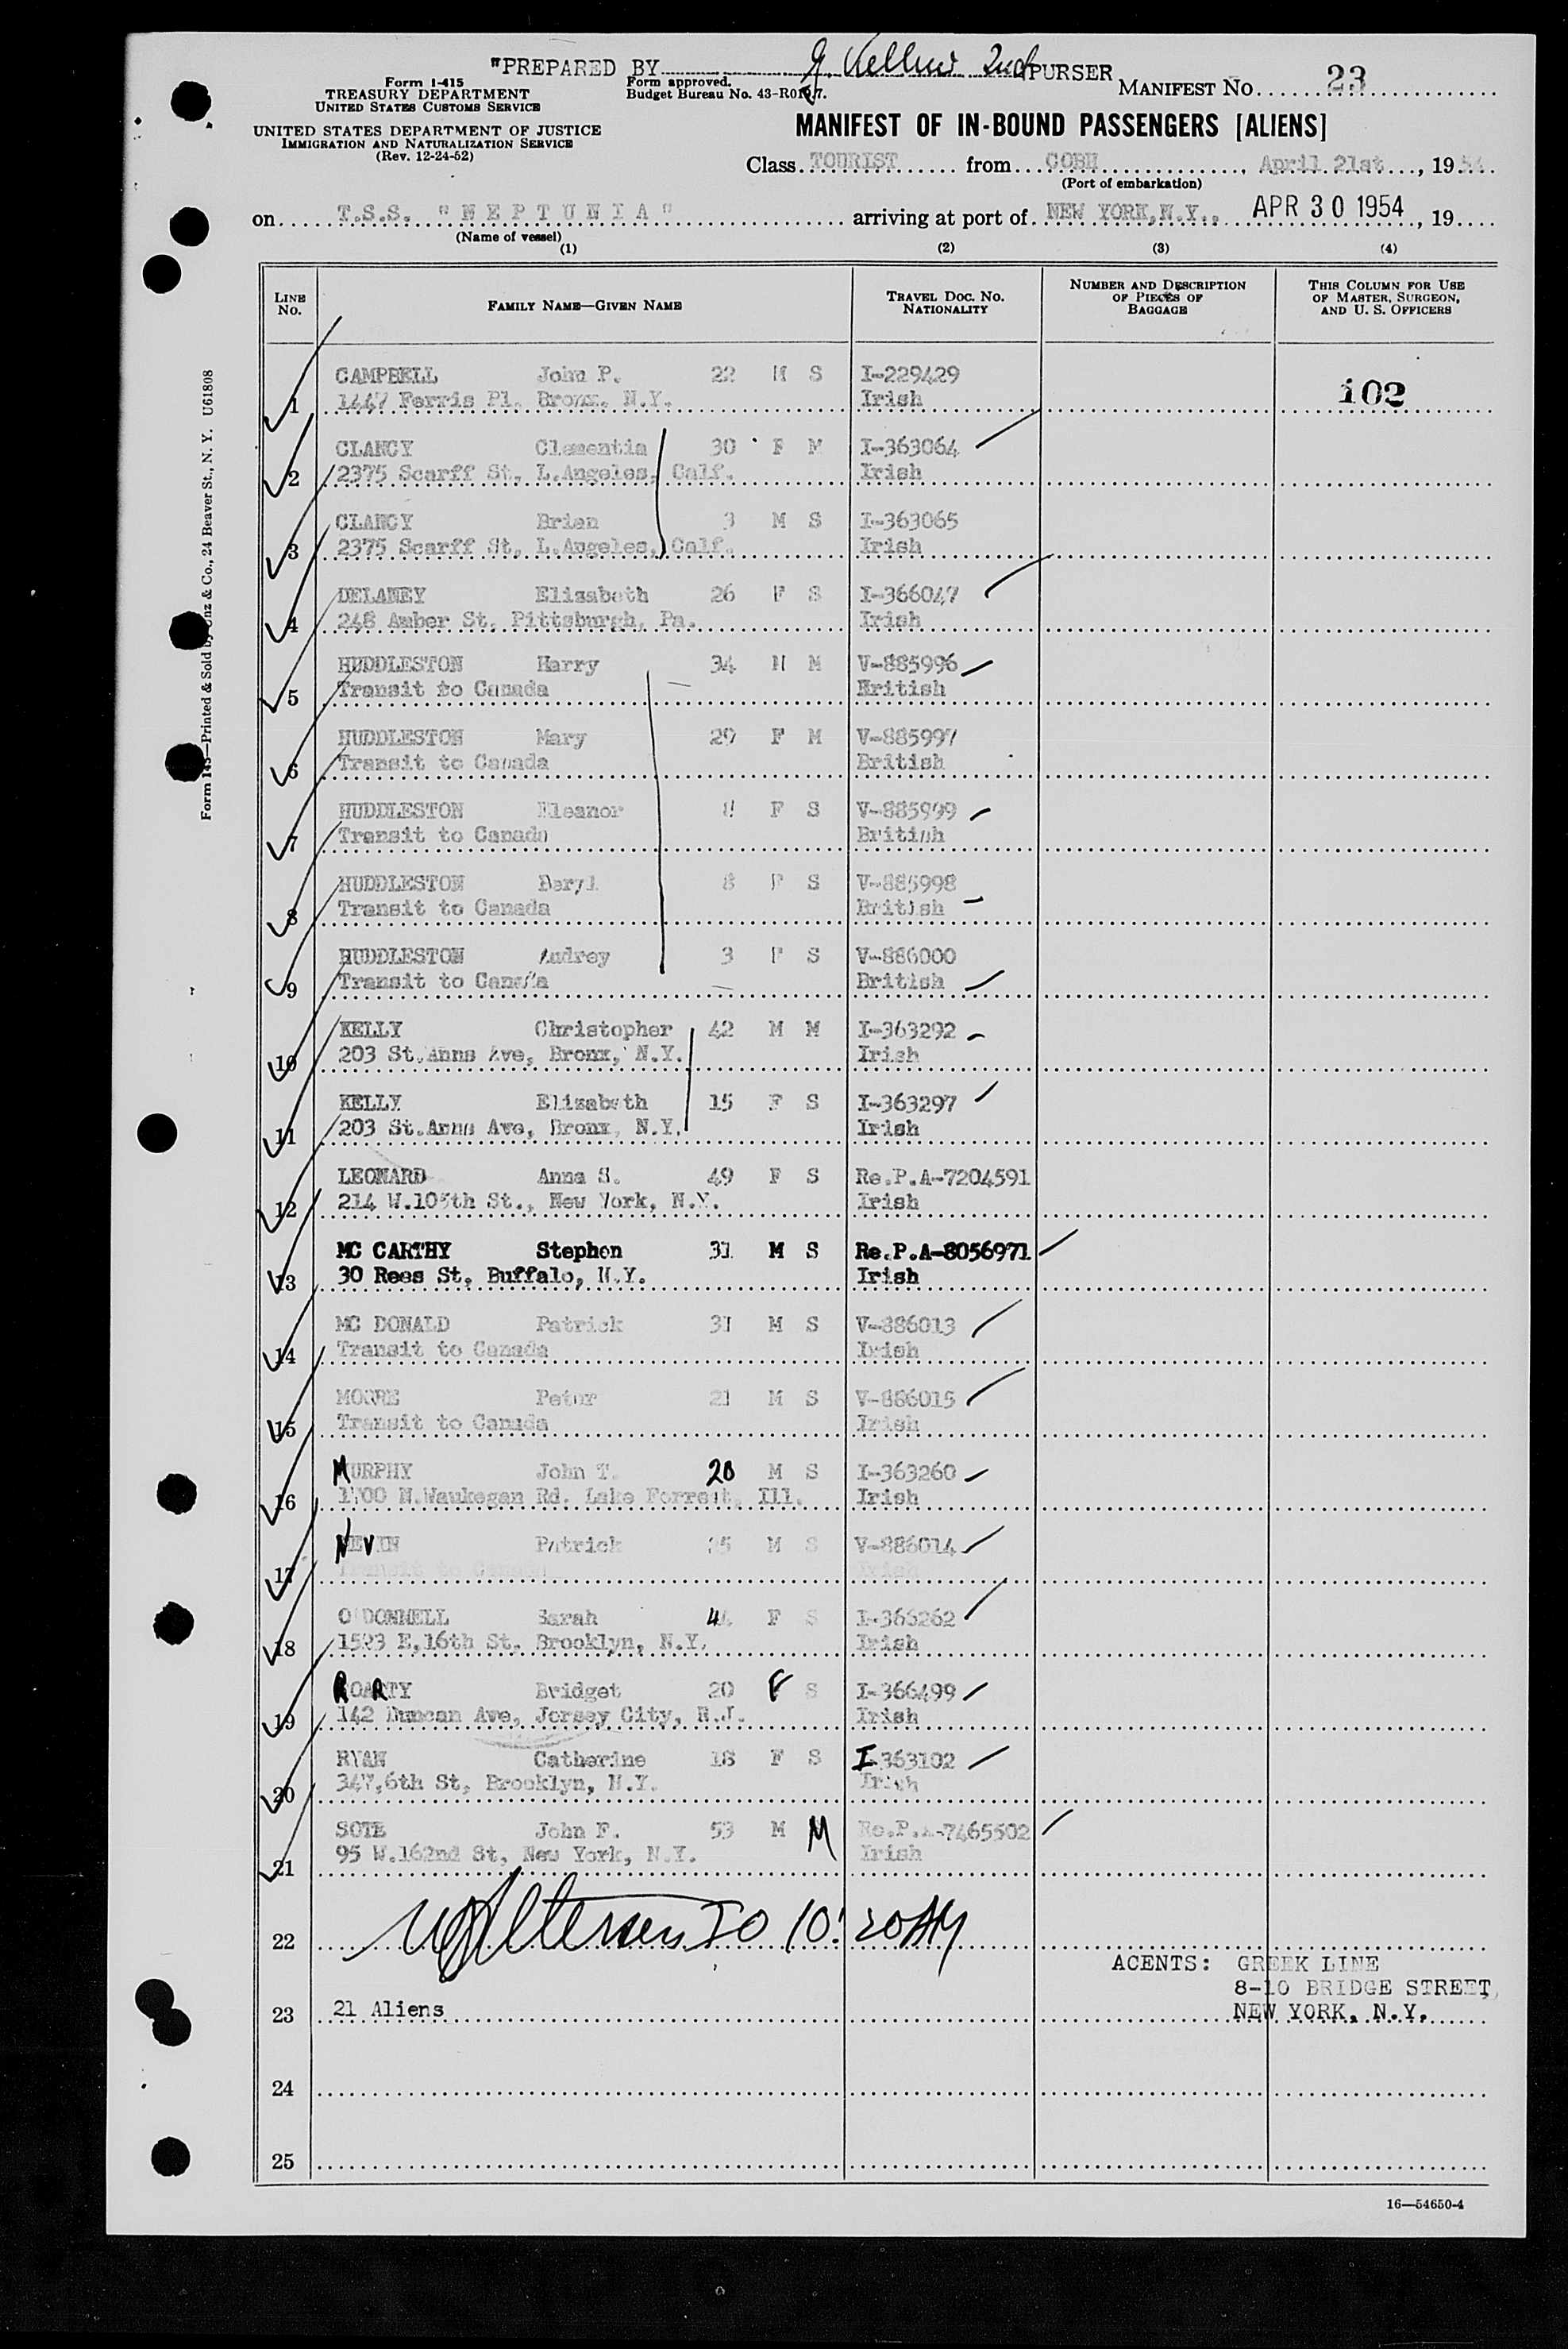 "PREPARED BY 2nd PURSER
Form I-415
TREASURY DEPARTMENT
UNITED STATES CUSTOMS SERVICE
Form approved.
Budget Bureau No.
MANIFEST NO. 23
UNITED STATES DEPARTMENT OF JUSTICE
IMMIGRATION AND NATURALIZATION SERVICE
(Rev. 12-24-52)
MANIFEST OF IN-BOUND PASSENGERS [ALIENS]
Class TOURIST from COBH, April 21st, 1954.
(Port of embarkation)
on T.S.S. "NEPTUNIA" arriving at port of NEW YORK, N.Y., APR 30 1954, 19
(Name of vessel)
(1) (2) (3) (4)
LINE NO. FAMILY NAME—GIVEN NAME TRAVEL DOC. NO. NATIONALITY NUMBER AND DESCRIPTION OF PIECES OF BAGGAGE THIS COLUMN FOR USE OF MASTER, SURGEON, AND U. S. OFFICERS
CAMPBELL John P. 22 M S I-229429
1 1447 Ferris Pl. Bronx, N.Y. Irish 102
CLANCY Clementia 30 F M I-363064
2 2375 Scarff St, L.Angeles, Calf. Irish
CLANCY Brian 3 M S I-363065
3 2375 Scarff St, L.Angeles, Calf. Irish
DELANEY Elisabeth 26 F S I-366047
4 248 Amber St, Pittsburgh, Pa. Irish
HUDDLESTON Harry 34 M M V-885996
5 Transit to Canada British
HUDDLESTON Mary 29 F M V-885997
6 Transit to Canada British
HUDDLESTON Eleanor 8 F S V-885999
7 Transit to Canada British
HUDDLESTON Beryl 8 F S V-885998
8 Transit to Canada British
HUDDLESTON Audrey 3 F S V-886000
9 Transit to Canada British
KELLY Christopher 42 M M I-363292
10 203 St.Anns Ave, Bronx, N.Y. Irish
KELLY Elizabeth 15 F S I-363297
11 203 St.Anns Ave, Bronx, N.Y. Irish
LEONARD Anna S. 49 F S Re.P.A-7204591
12 214 W.105th St., New York, N.Y. Irish
MC CARTHY Stephen 31 M S Re.P.A-8056971
13 30 Rees St, Buffalo, N.Y. Irish
MC DONALD Patrick 31 M S V-886013
14 Transit to Canada Irish
MOORE Peter 21 M S V-886015
15 Transit to Canada Irish
MURPHY John T. 28 M S I-363260
16 N.Waukegan Rd. Lake Forrest, Ill. Irish
NEVIN Patrick 25 M S V-886014
17 Transit to Canada Irish
O'DONNELL Sarah F S I-366262
18 1523 E,16th St, Brooklyn, N.Y. Irish
ROARTY Bridget 20 F S I-366499
19 142 Duncan Ave, Jersey City, N.J. Irish
RYAN Catherine 18 F S I-363102
20 347,6th St, Brooklyn, N.Y. Irish
SOTE John F. 53 M M Re.P.A-7465502
21 95 W.162nd St, New York, N.Y. Irish
22 10:20 AM
AGENTS: GREEK LINE
8-10 BRIDGE STREET,
23 21 Aliens NEW YORK, N.Y.
24
25
16—54650-4
Printed & Sold by Unz & Co., 24 Beaver St., N. Y. U61808